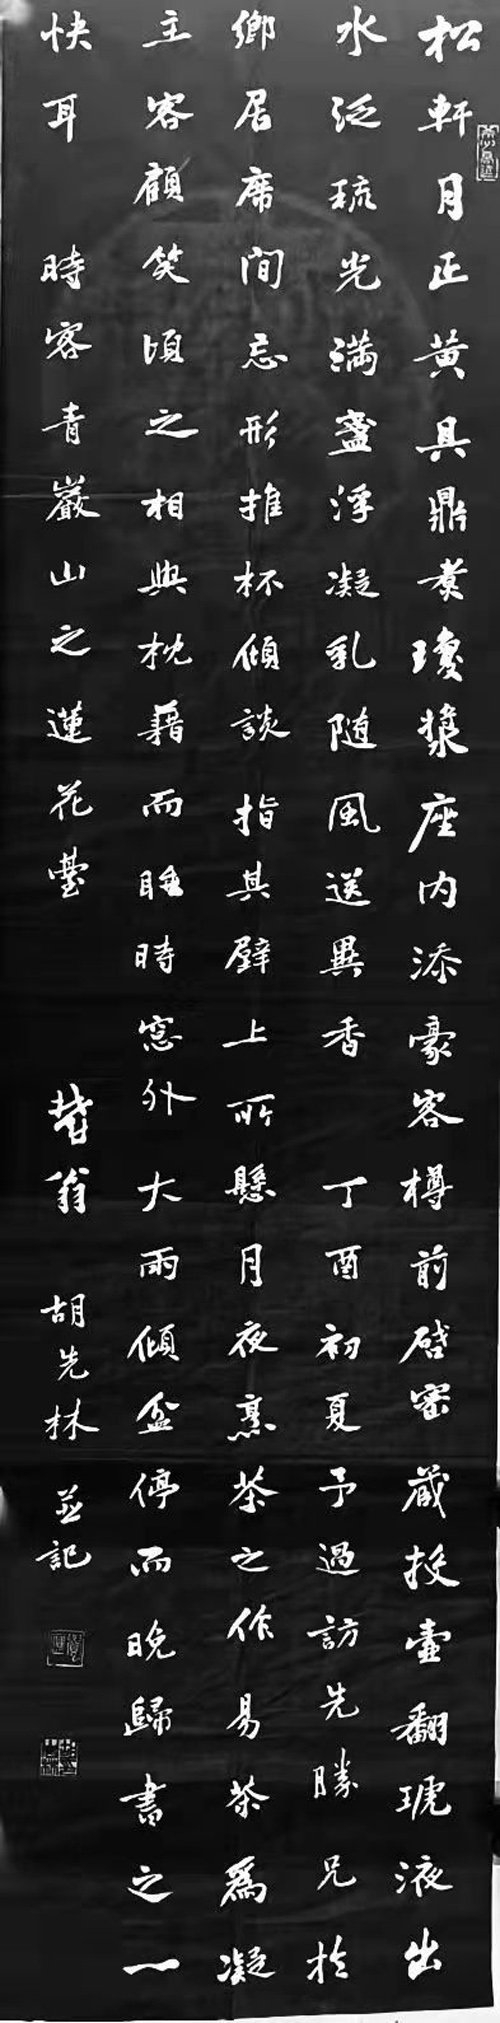 松軒月正黃具鼎煮瓊漿座内添豪客樽前啓密藏投壺翻琥液出
水泛琉光滿盞浮凝乳随風送異香 丁酉初夏予過訪先勝兄於
鄉居席間忘形推杯傾談指其壁上所懸月夜烹茶之作易茶爲凝
主客顧笑頃之相與枕藉而睡時窓外大雨傾盆停而晚歸書之一
快耳 時客青巖山之蓮花臺 翁 胡先林並記